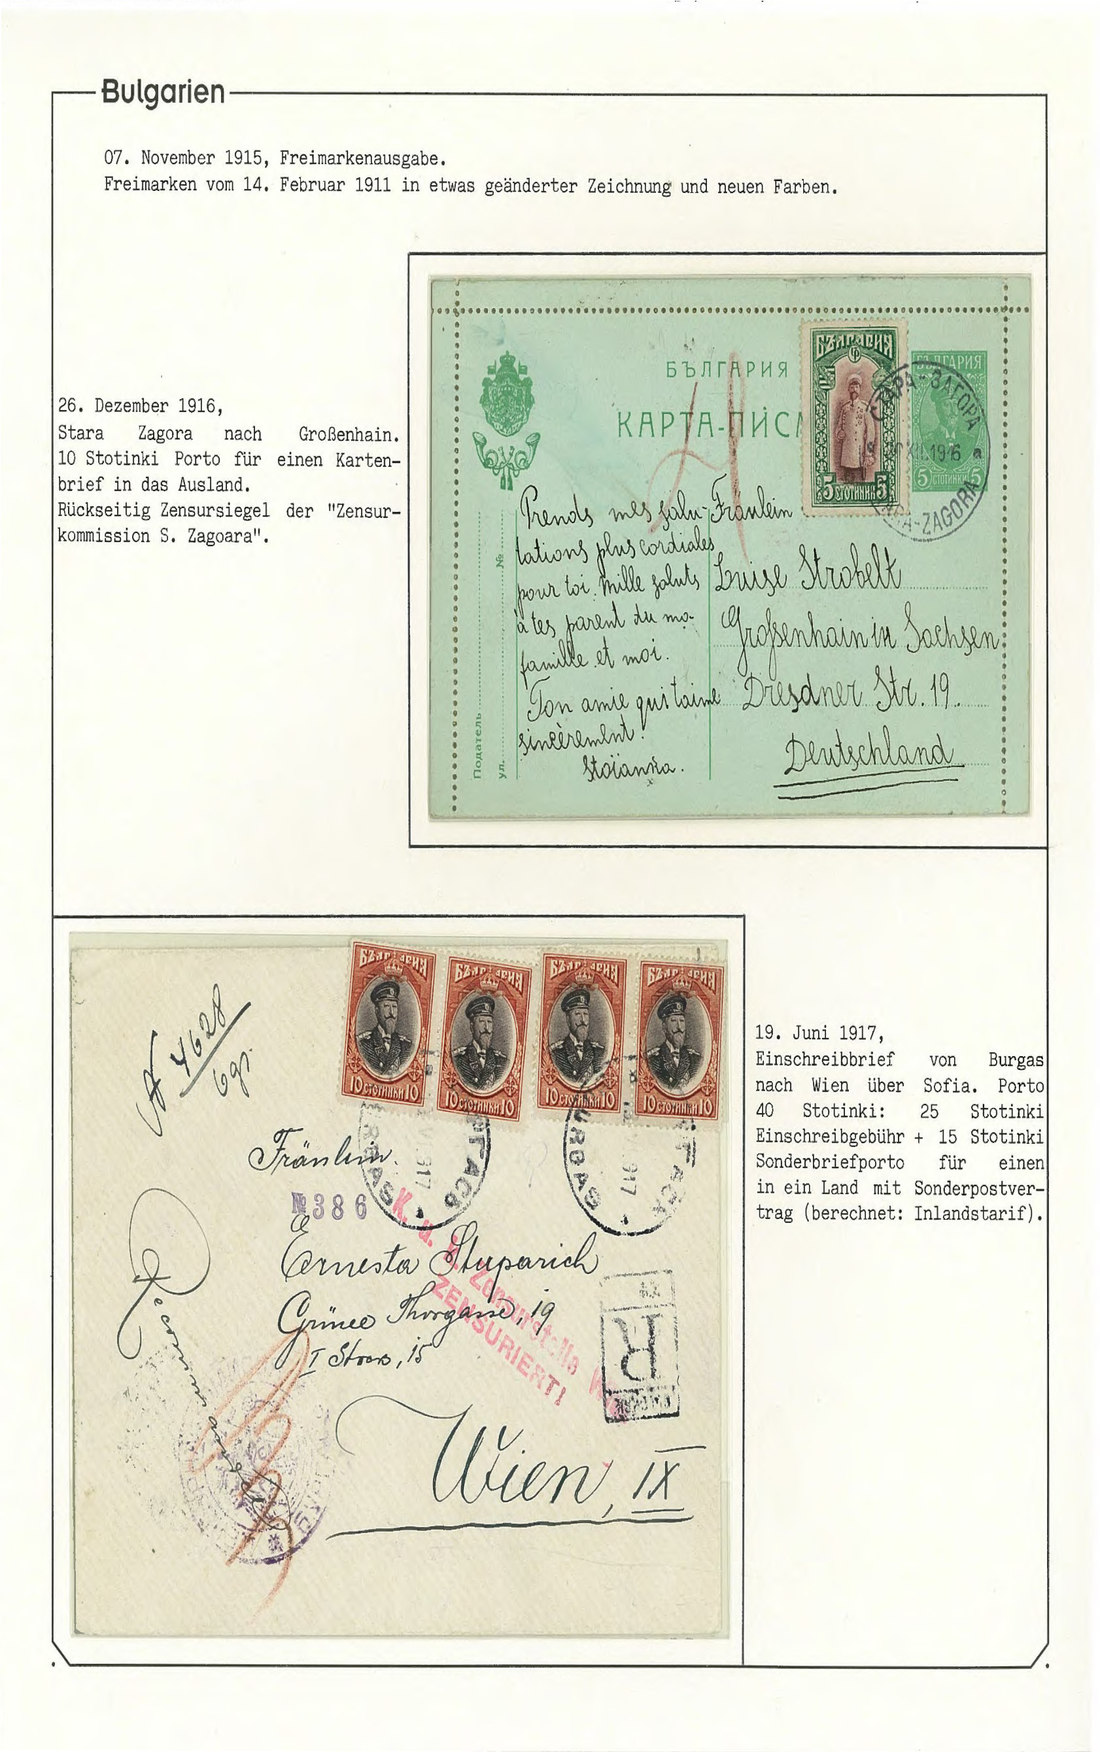 Bulgarien
07. November 1915, Freimarkenausgabe.
Freimarken vom 14. Februar 1911 in etwas geänderter Zeichnung und neuen Farben.
26. Dezember 1916,
Stara Zagora nach Großenhain.
10 Stotinki Porto für einen Karten-
brief in das Ausland.
Rückseitig Zensursiegel der "Zensur-
kommission S. Zagoara".
БЪЛГАРИЯ
КАРТА-ПИСМ
БЪЛГАРИЯ
5 СТОТИНКИ 5
БЪЛГАРИЯ
5 СТОТИНКИ 5
СТАРА-ЗАГОРА
XII.1916
ZAGORA
Податель
ул. №
Prends mes salu-
tations plus cordiales
pour toi. Mille saluts
à tes parent du ma
famille et moi.
Ton amie qui t'aime
sincèrement!
Stoïanka.
Fräulein
Luise Strobelt
Großenhain in Sachsen
Dresdner Str. 19.
Deutschland
БЪЛГАРИЯ
10 СТОТИНКИ 10
БЪЛГАРИЯ
10 СТОТИНКИ 10
БЪЛГАРИЯ
10 СТОТИНКИ 10
БЪЛГАРИЯ
10 СТОТИНКИ 10
BURGAS
4628
6gr.
Fräulein
№386
Ernesta Stuparich
Grünee Thorgasse, 19
I Stock, 15
Wien, IX
Recommandée
K. u. K. Zensurstelle W
ZENSURIERT!
R
19. Juni 1917,
Einschreibbrief von Burgas
nach Wien über Sofia. Porto
40 Stotinki: 25 Stotinki
Einschreibgebühr + 15 Stotinki
Sonderbriefporto für einen
in ein Land mit Sonderpostver-
trag (berechnet: Inlandstarif).